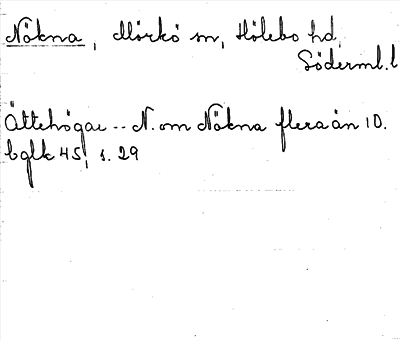 Nökna, Mörkö sn, Hölebo hd,
Söderml. l
Ättehögar -- N. om Nökna flera än 10.
bglk 45, s. 29